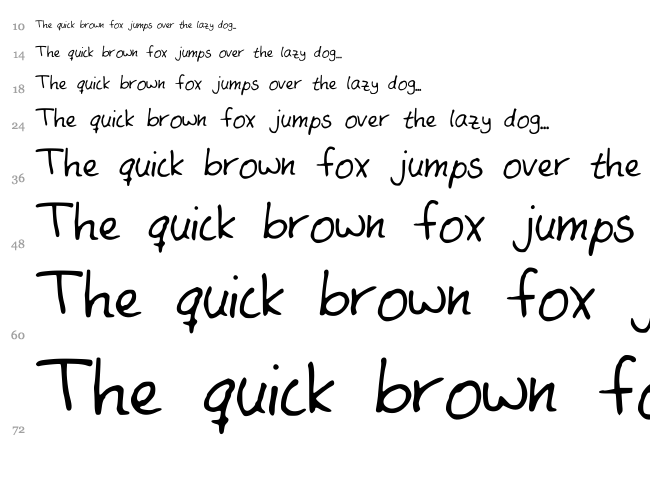 10 The quick brown fox jumps over the lazy dog...
14 The quick brown fox jumps over the lazy dog...
18 The quick brown fox jumps over the lazy dog...
24 The quick brown fox jumps over the lazy dog...
36 The quick brown fox jumps over the
48 The quick brown fox jumps
60 The quick brown fox
72 The quick brown fo